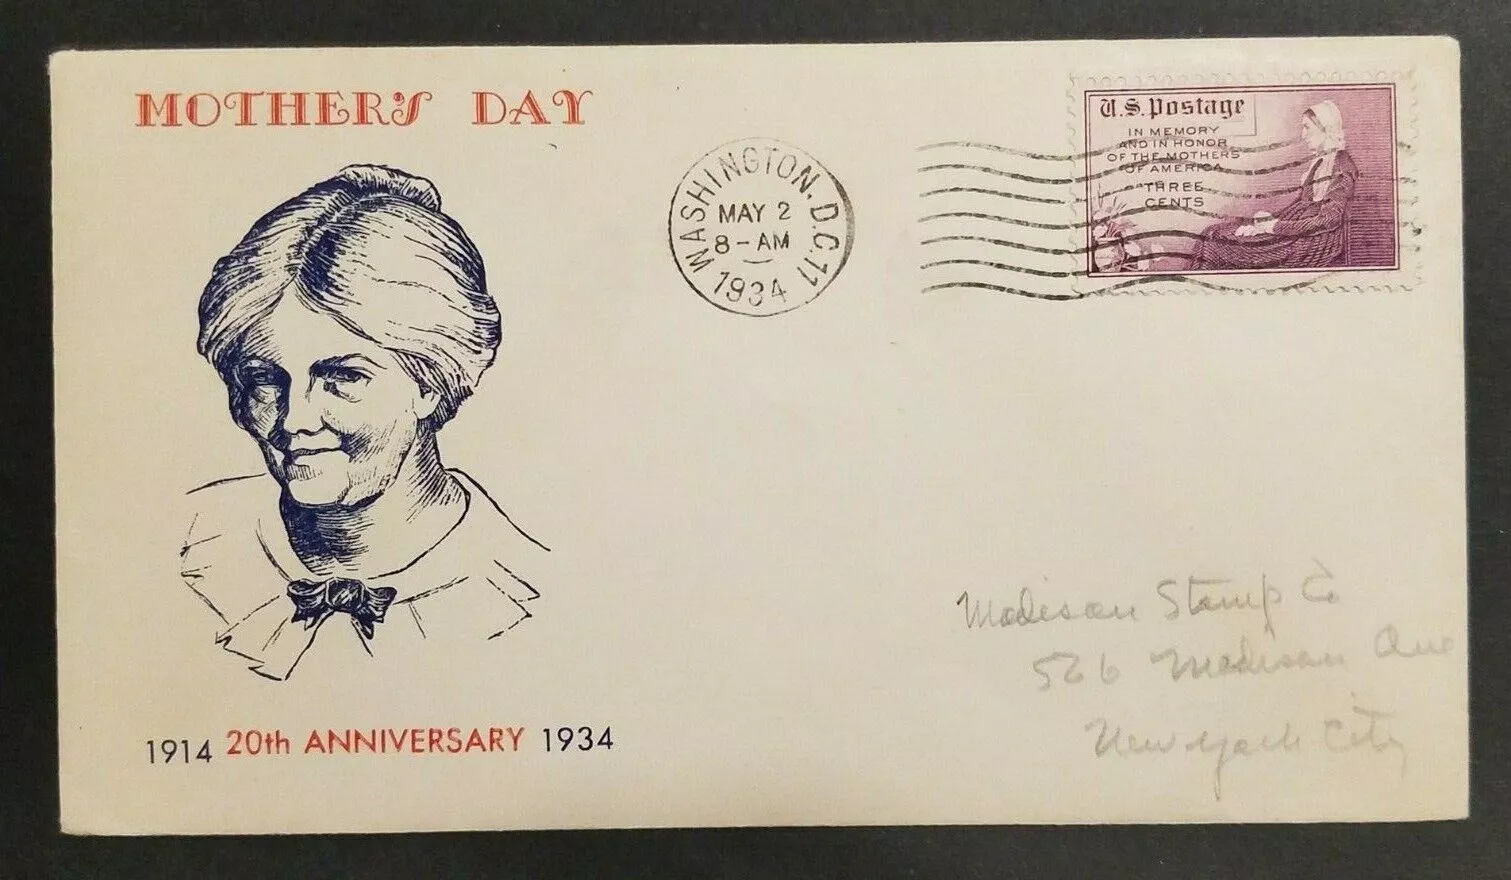 MOTHER'S DAY
WASHINGTON, D.C. 11
MAY 2
8-AM
1934
U.S. Postage
IN MEMORY
AND IN HONOR
OF THE MOTHERS
OF AMERICA
THREE
CENTS
Madison Stamp Co
566 Madison Ave
New York City
1914 20th ANNIVERSARY 1934